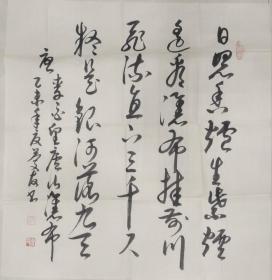 日照香炉生紫烟
遥看瀑布挂前川
飞流直下三千尺
疑是银河落九天
唐李白望庐山瀑布
乙未年夏